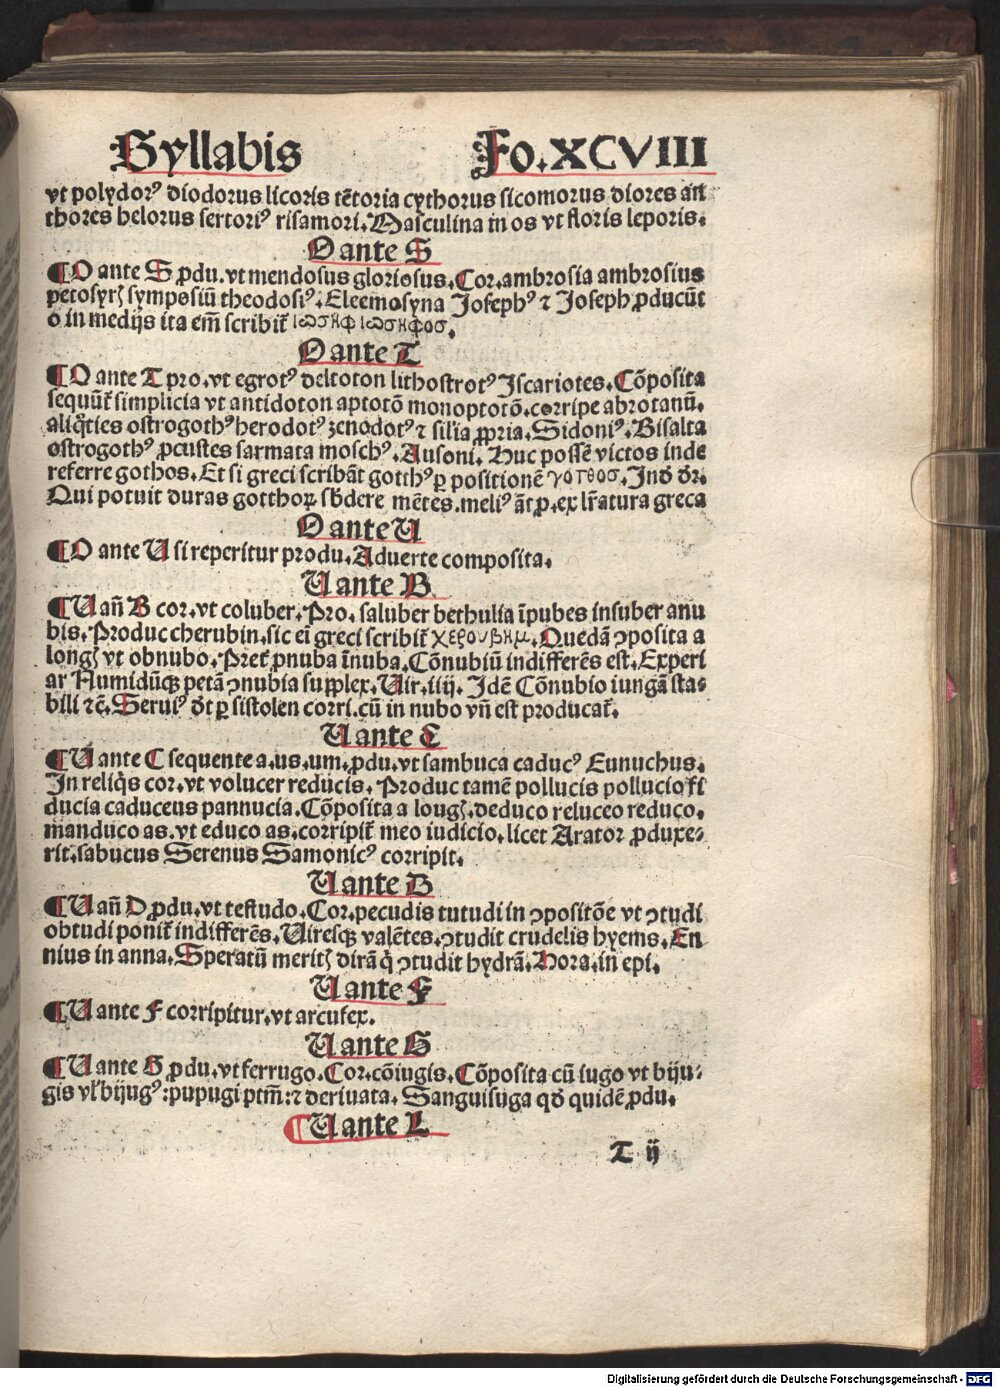 Syllabis Fo.XCVIII
vt polydorꝰ diodorus licoris tētoria cythorus sicomorus diores an
thores helorus sertorꝰ risamori. Masculina in os vt floris leporis.
O ante S
¶O ante S ꝓdu. vt mendosus gloriosus. Cor. ambrosia ambrosius
petosyrꝭ symposiū theodosiꝰ. Eleemosyna Josephꝰ ⁊ Joseph ꝓducūt
o in medijs ita em̄ scribit̄ ιωσηφ ιωσηφοσ.
O ante T
¶O ante T pro. vt egrotꝰ deltoton lithostrotꝰ Iscariotes. Cōposita
sequūt̄ simplicia vt antidoton aptotō monoptotō. corripe abrotanū.
aliq̄ties ostrogothꝰ herodotꝰ zenodotꝰ ⁊ silia ꝓpria. Sidoniꝰ. Bisalta
ostrogothꝰ ꝓcustes sarmata moschꝰ. Ausoni. Huc possē victos inde
referre gothos. Et si greci scribāt gotthꝰ ꝑ positionē γοτθοσ.
Qui potuit duras gotthoꝝ sb̄dere mētes. meliꝰ āt ꝓ. ex lr̄atura greca
O ante U
¶O ante U si reperitur produ. Aduerte composita.
U ante B
¶U an̄ B cor. vt coluber. Pro. saluber bethulia īpubes insuber anu
bis. Produc cherubin. sic ei greci scribit̄ χερουβημ. Quedā ꝯposita a
longꝭ vt obnubo. Pret̄ ꝓnuba īnuba. Cōnubiū indifferēs est. Experi
ar Numidūqꝫ petā ꝯnubia supplex. Uir. iiij. Idē Cōnubio iungā sta-
bili ⁊c̄. Seruiꝰ d̄t ꝑ sistolen corri. cū in nubo vn̄ est producat̄.
U ante C
¶U ante C sequente a. us. um. ꝓdu. vt sambuca caducꝰ Eunuchus.
In reliq̄s cor. vt volucer reducis. Produc tamē pollucis pollucio fi
ducia caduceus pannucia. Cōposita a longꝭ. deduco reluceo reduco.
manduco as. vt educo as. corripit̄ meo iudicio. licet Arator ꝓduxe-
rit. sabucus Serenus Samonicꝰ corripit.
U ante D
¶U an̄ D ꝓdu. vt testudo. Cor. pecudis tutudi in ꝯpositōe vt ꝯtudi
obtudi ponit̄ indifferēs. Uiresqꝫ valētes. ꝯtudit crudelis hyems. En
nius in anna. Speratū meritꝭ dirā q̄ ꝯtudit hydrā. Hora. in epi.
U ante F
¶U ante F corripitur. vt arcufex.
U ante G
¶U ante G ꝓdu. vt ferrugo. Cor. cōiugis. Cōposita cū iugo vt biju-
gis vl̄ bijugꝰ: pupugi ptm̄: ⁊ deriuata. Sanguisuga qd̄ quidē ꝓdu.
¶U ante L
T ij
Digitalisierung gefördert durch die Deutsche Forschungsgemeinschaft - DFG